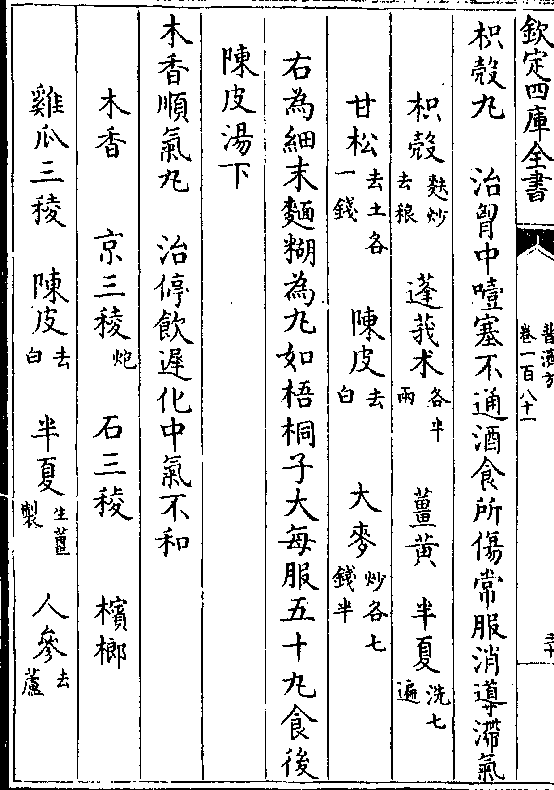 欽定四庫全書
普濟方
卷一百八十一
枳殼丸 治胷中噎塞不通酒食所傷常服消導滯氣
枳殼麩炒去穰 蓬莪术各半兩 薑黃 半夏洗七遍
甘松去土各一錢 陳皮去白 大麥炒各七錢半
右為細末麵糊為丸如梧桐子大每服五十丸食後
陳皮湯下
木香順氣丸 治停飲遲化中氣不和
木香 京三稜炮 石三稜 檳榔
雞瓜三稜 陳皮去白 半夏生薑製 人參去蘆